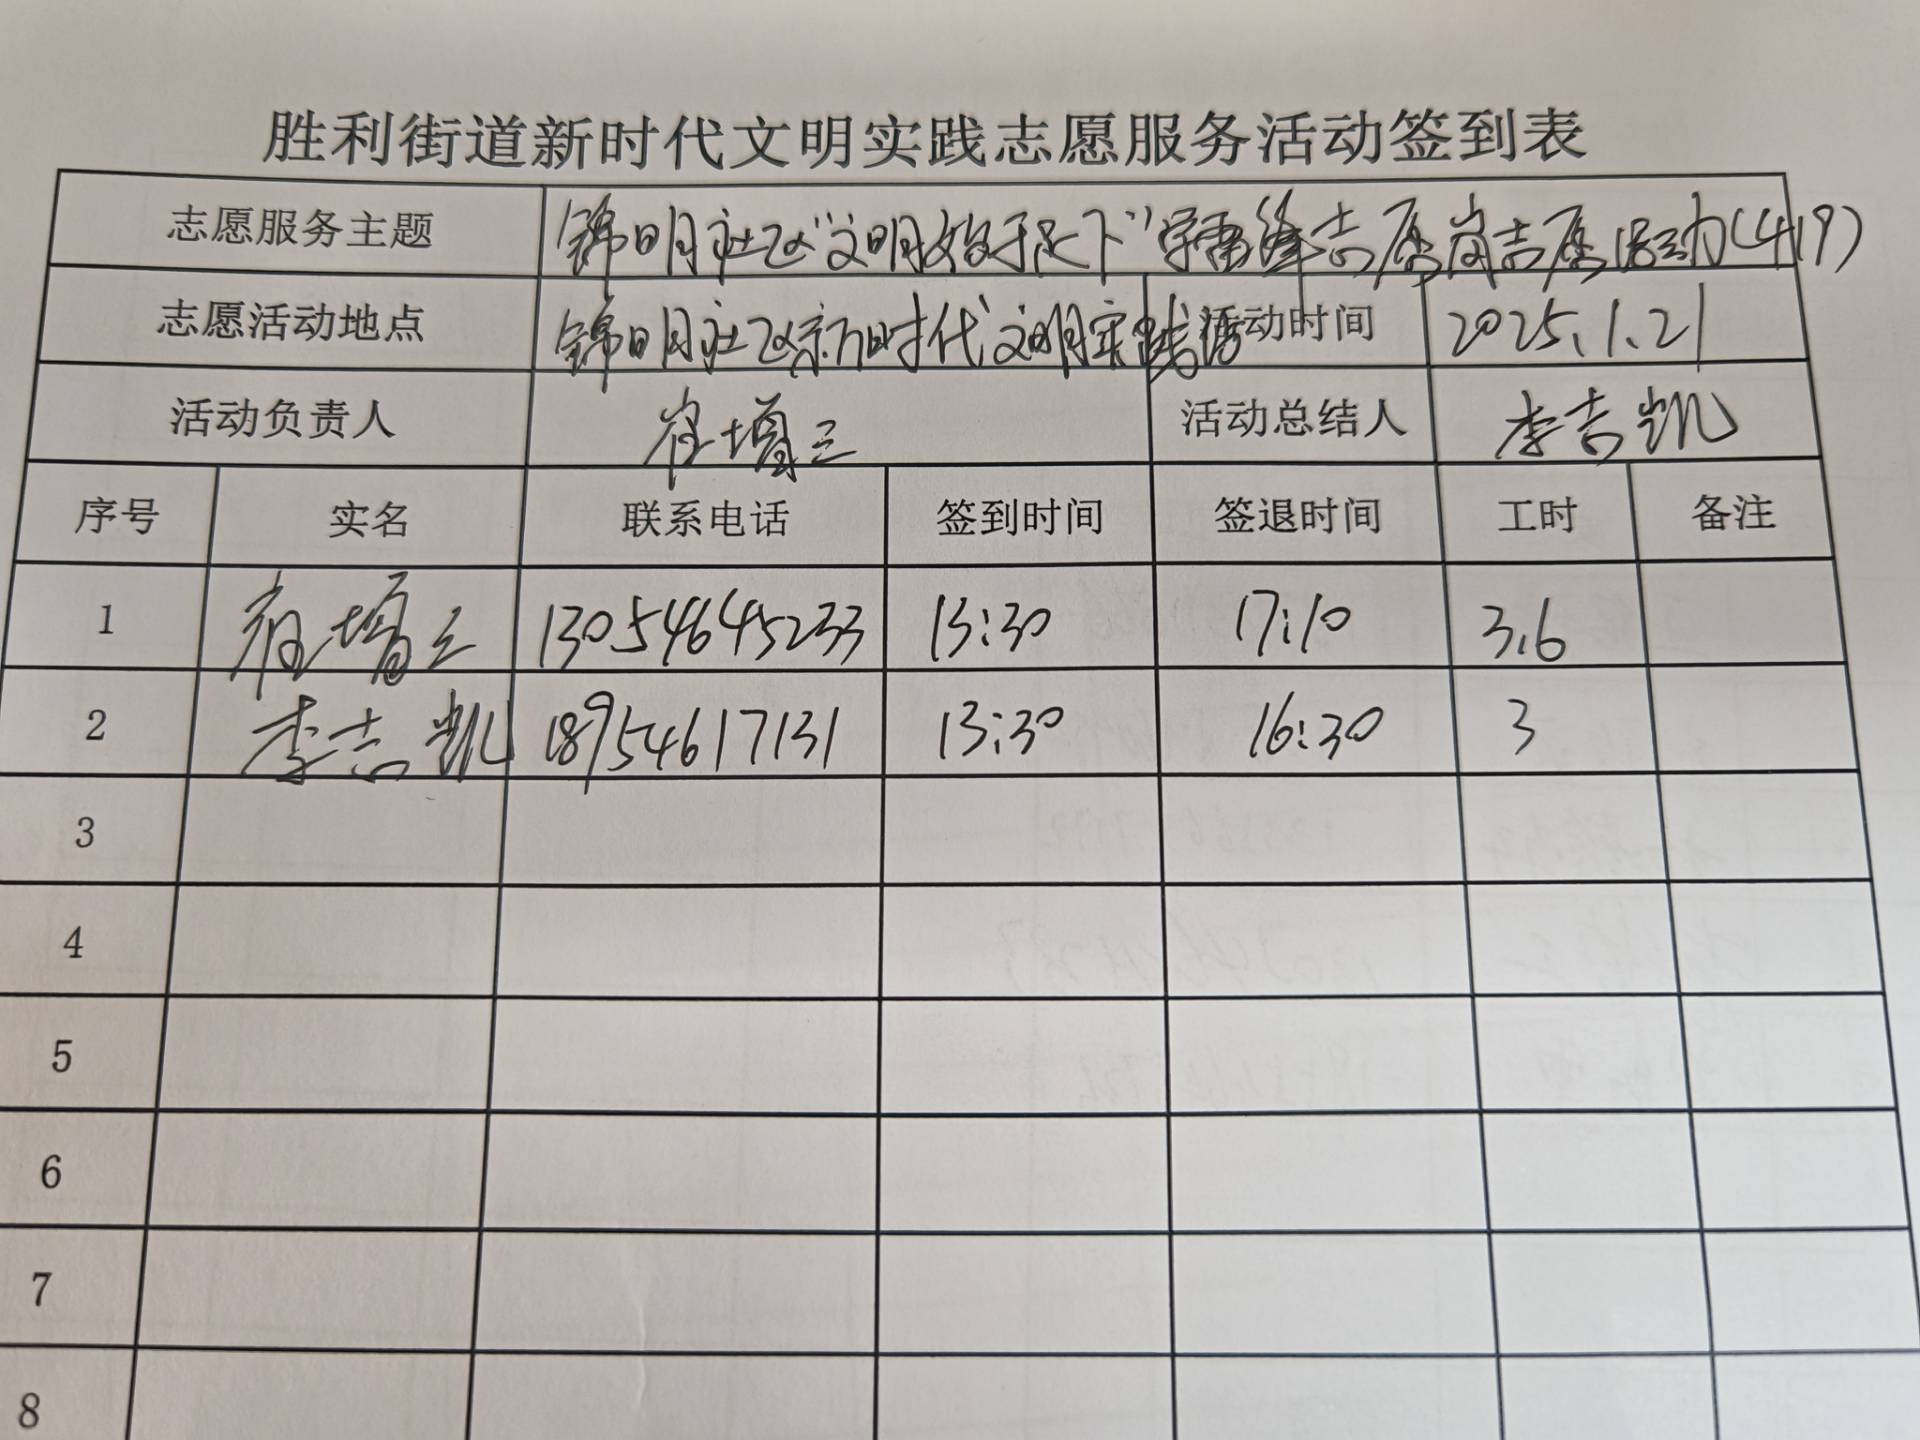 胜利街道新时代文明实践志愿服务活动签到表
志愿服务主题 锦明社区“文明始于足下”学雷锋志愿岗志愿活动(419)
志愿活动地点 锦明社区新时代文明实践 活动时间 2025.1.21
活动负责人 崔增三 活动总结人 李吉凯
序号 实名 联系电话 签到时间 签退时间 工时 备注
1 崔增三 13054645233 13:30 17:10 3.6
2 李吉凯 18954617131 13:30 16:30 3
3
4
5
6
7
8